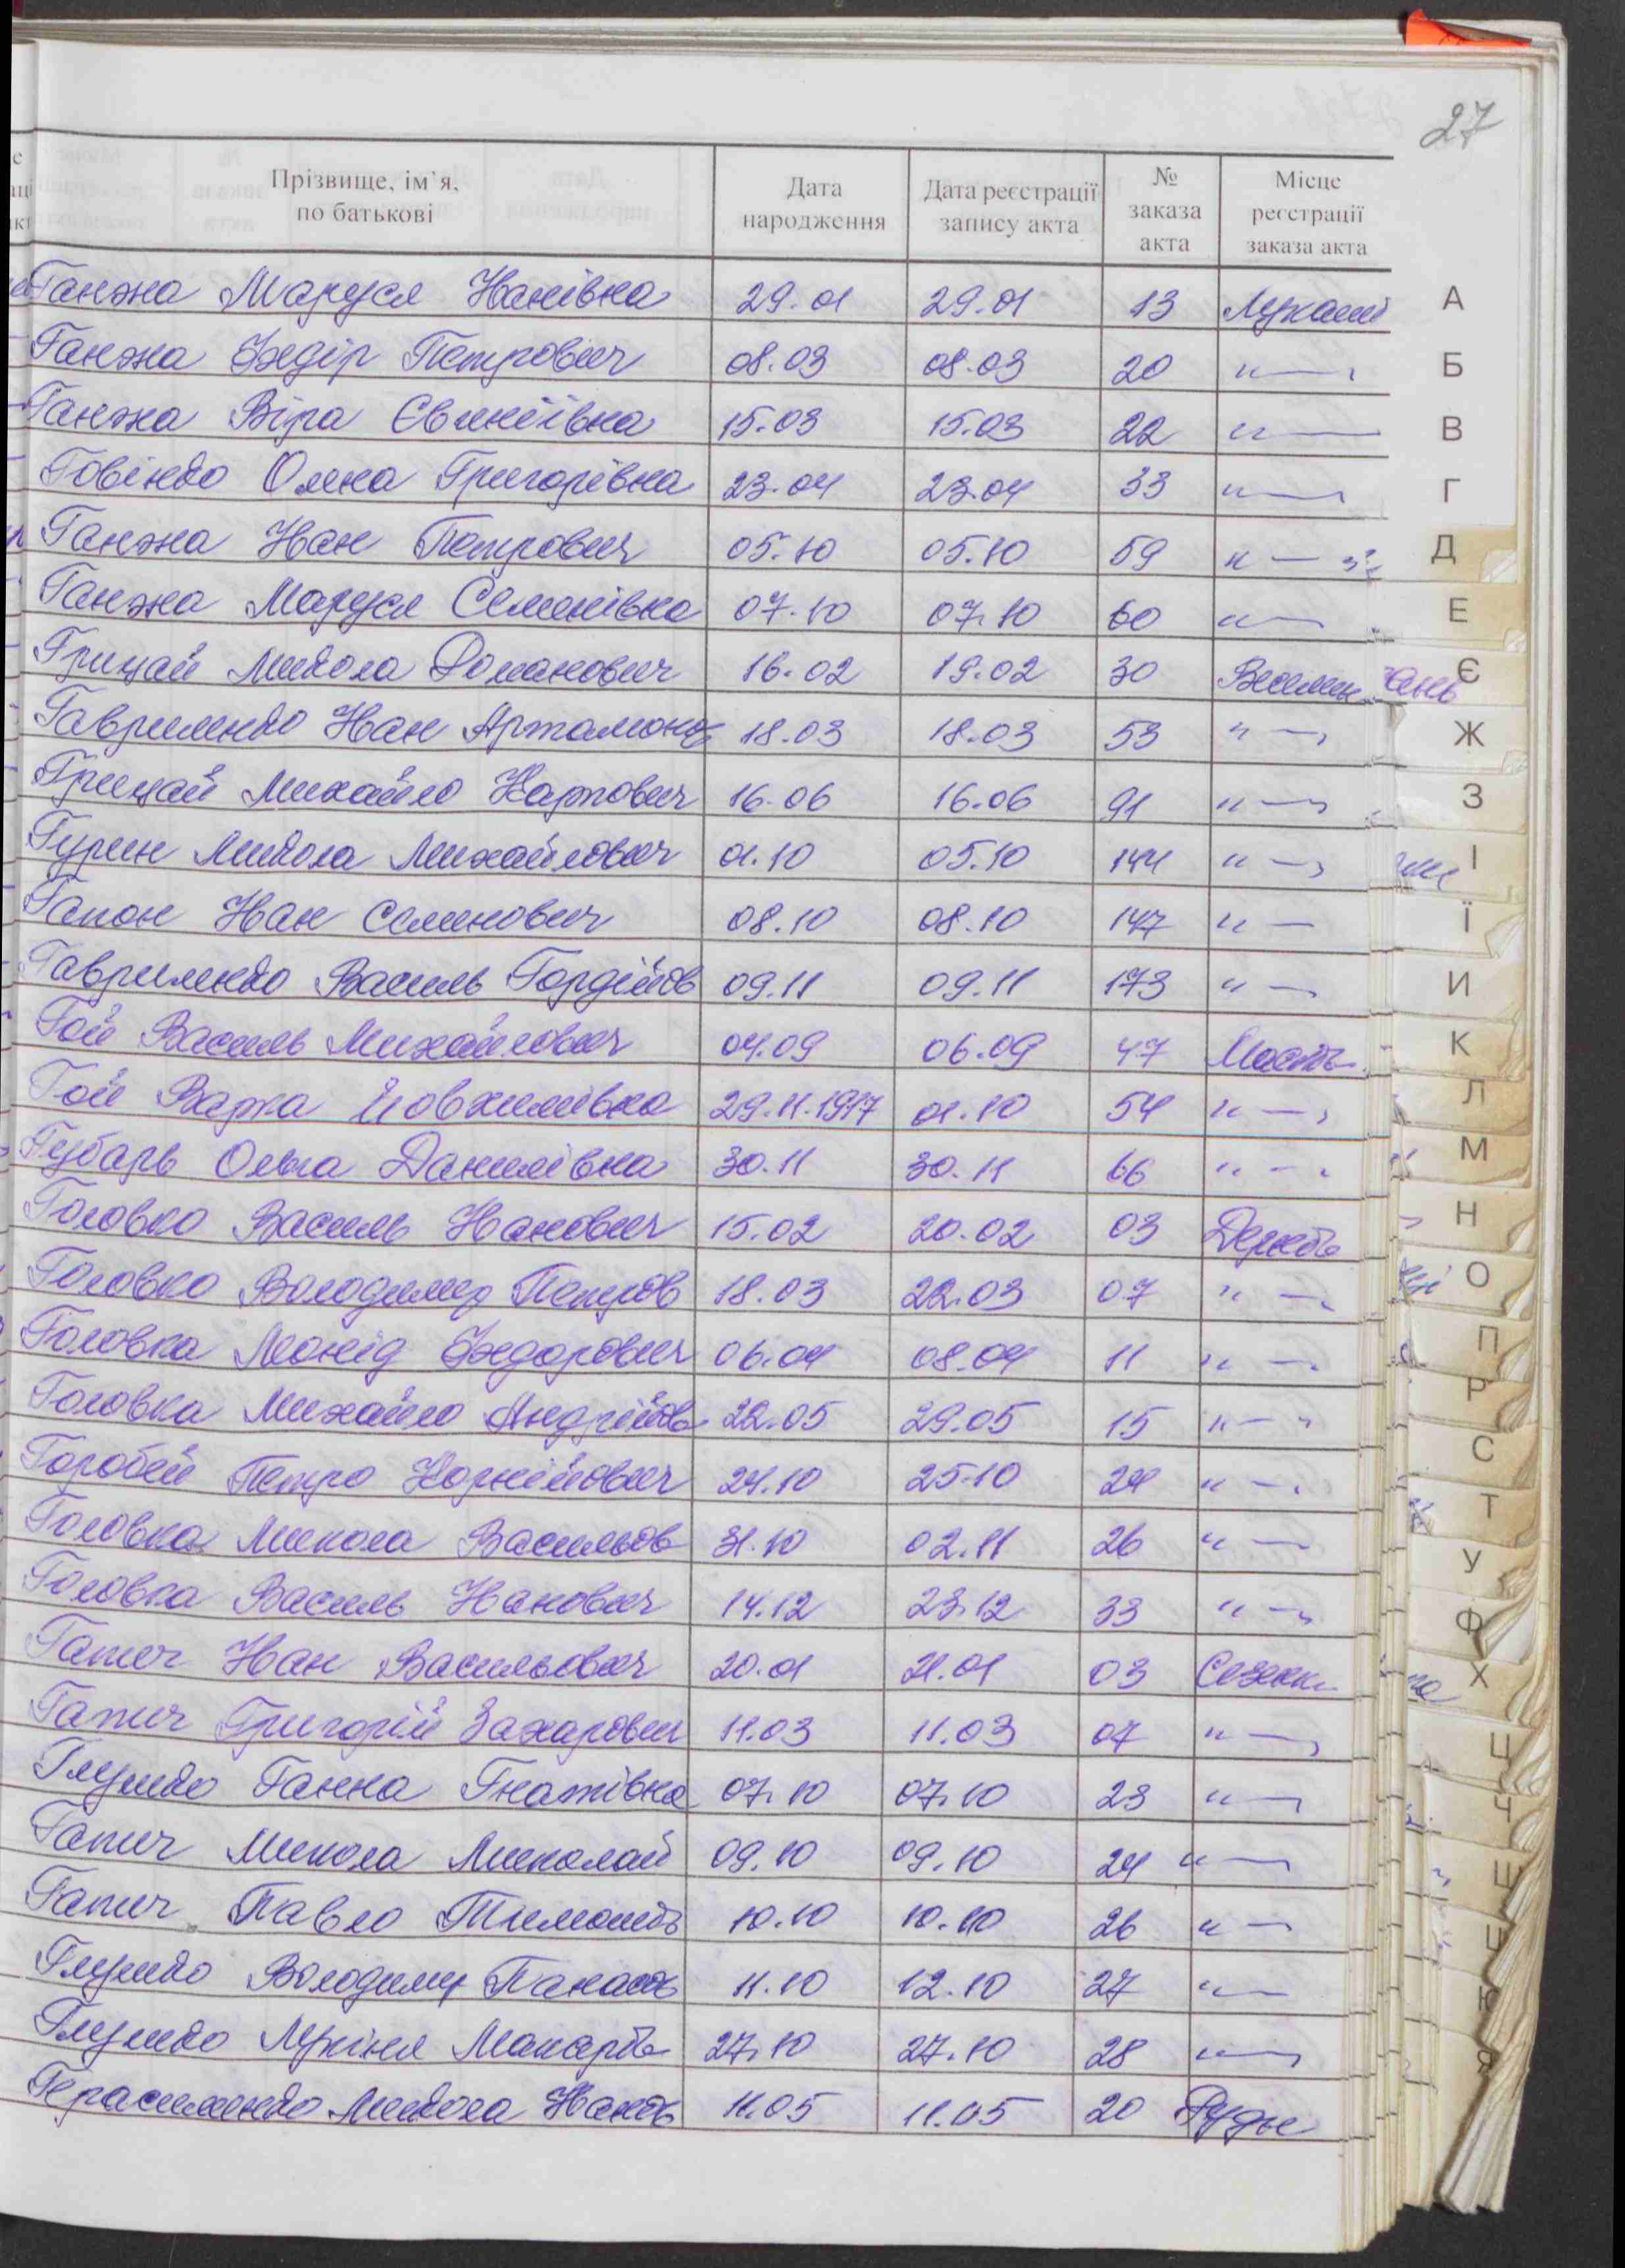 27
Прізвище, ім'я, по батькові | Дата народження | Дата реєстрації запису акта | № заказа акта | Місце реєстрації заказа акта
Ганжа Маруся Іванівна 29.01 29.01 13
Ганжа Федір Петрович 08.03 08.03 20 "—"
Ганжа Віра Євгеніївна 15.03 15.03 22 "—
Олена Григорівна 23.04 23.04 33 "—
Ганжа Іван Петрович 05.10 05.10 59 "—"
Ганжа Маруся Семенівна 07.10 07.10 60 "—
Грицай Микола Романович 16.02 19.02 30
Гавриленко Іван Артамонов 18.03 18.03 53 "—"
Грицай Михайло Карпович 16.06 16.06 91 "—"
Гурин Микола Михайлович 01.10 05.10 144 "—"
Гапон Іван Семенович 08.10 08.10 147 "—
Гавриленко Василь Гордійов 09.11 09.11 173 "—
Гой Василь Михайлович 04.09 06.09 47
Гой Варка 29.11.1917 01.10 54 "—"
Губарь Ольга Данилівна 30.11 30.11 66 "—"
Головко Василь Іванович 15.02 20.02 03
Головко Володимир Петров 18.03 22.03 07 "—
Головка Леонід Федорович 06.04 08.04 11 "—
Головка Михайло Андрійов 22.05 29.05 15 "—"
Горобей Петро Корнійович 24.10 25.10 24 "—
Головка Микола Васильов 31.10 02.11 26 "—
Головка Василь Іванович 14.12 23.12 33 "—"
Гапич Іван Васильович 20.01 21.01 03
Гапич Григорій Захарович 11.03 11.03 07 "—"
Глушко Ганна Гнатівна 07.10 07.10 23 "—
Гапич Микола Миколай 09.10 09.10 24 "—
Гапич Павло 10.10 10.10 26 "—
Глушко Володимир Панасов 11.10 12.10 27 "—
Глушко Лукіня Макарів 27.10 27.10 28 "—
Герасименко Микола Іванов 11.05 11.05 20
А
Б
В
Г
Д
Е
Є
Ж
З
І
Ї
И
К
Л
М
Н
О
П
Р
С
Т
У
Ф
Х
Ц
Ч
Ш
Щ
Ю
Я